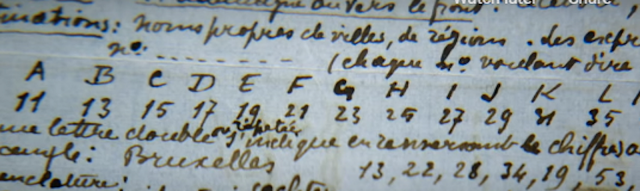 Watch later Share
vers le
inations: noms propres de villes, de régions. des expr
n°: - - - - - - - - - - (chaque n° voulant dire
A B C D E F G H I J K L
11 13 15 17 19 21 23 25 27 29 31 35
une lettre double ou répétée s'indique en renversant le chiffre a
emple: Bruxelles 13, 22, 28, 34, 19, 53,
enclature: